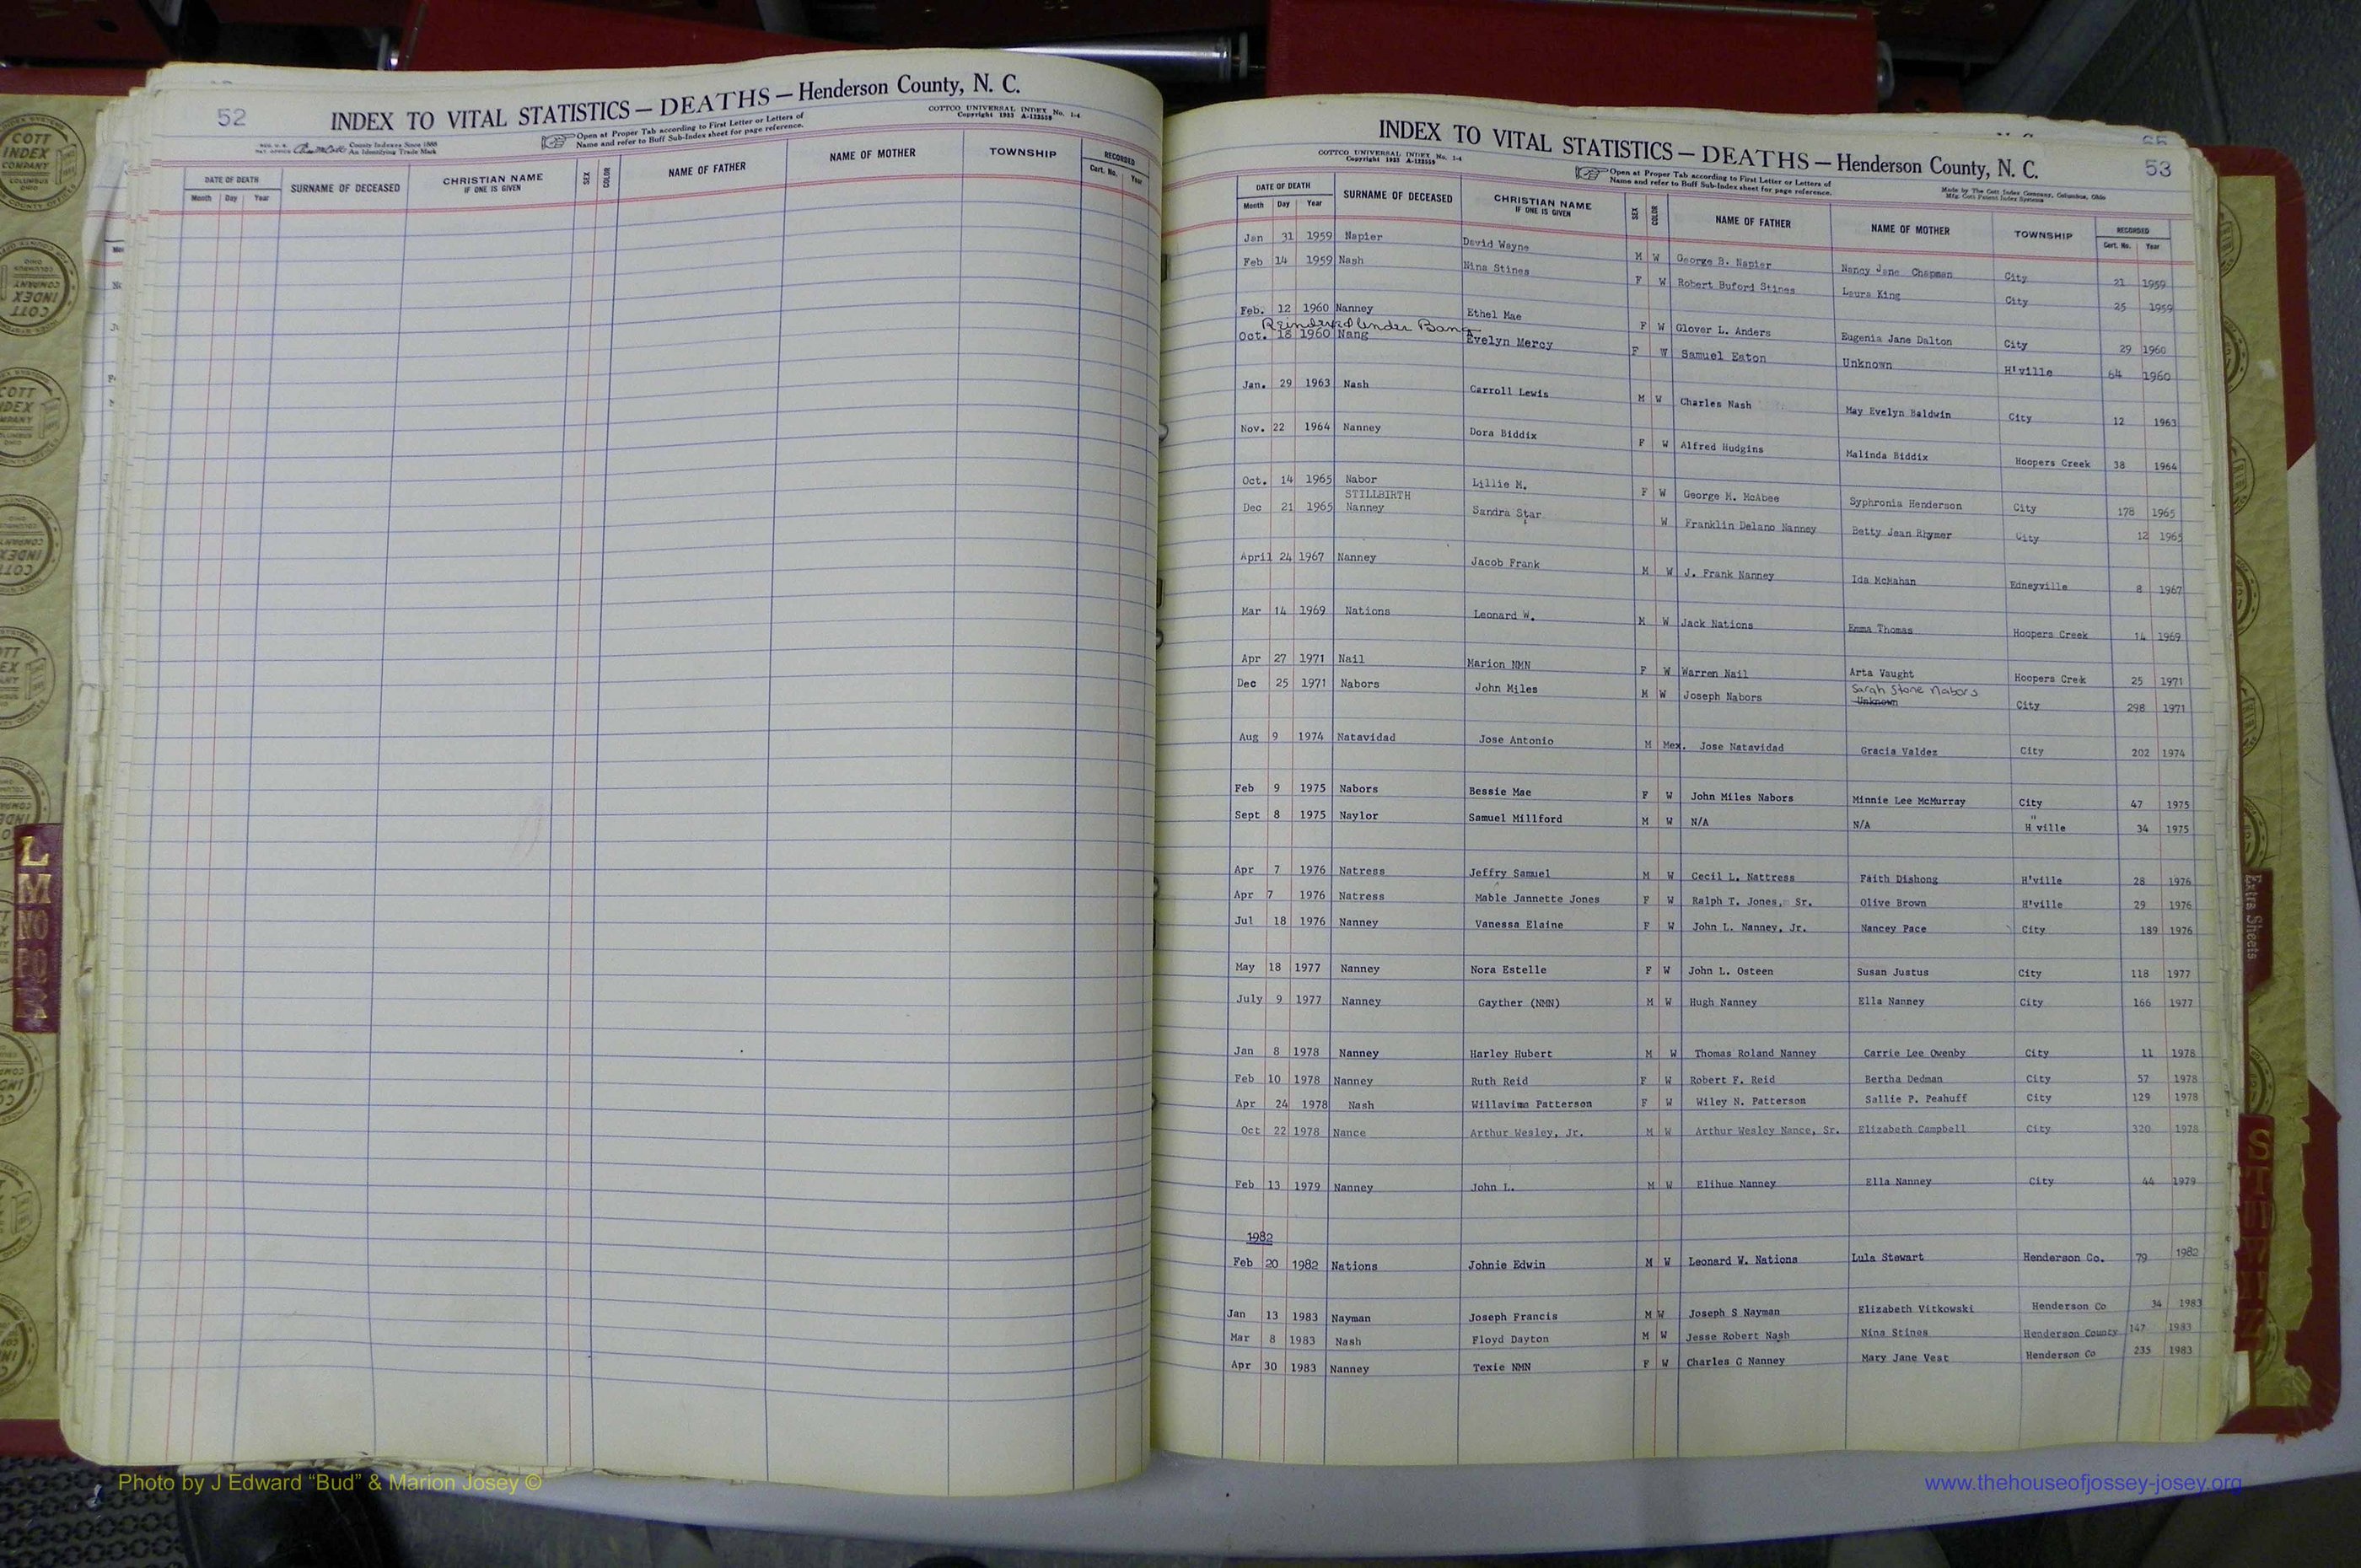 52
INDEX TO VITAL STATISTICS — DEATHS — Henderson County, N. C.
COTTCO UNIVERSAL INDEX No. 1-4
Copyright 1933 A-123559
County Indexes Since 1888
An Identifying Trade Mark
Open at Proper Tab according to First Letter or Letters of
Name and refer to Buff Sub-Index sheet for page reference.
DATE OF DEATH
Month Day Year
SURNAME OF DECEASED
CHRISTIAN NAME
IF ONE IS GIVEN
SEX
COLOR
NAME OF FATHER
NAME OF MOTHER
TOWNSHIP
RECORDED
Cert. No. Year
53
INDEX TO VITAL STATISTICS — DEATHS — Henderson County, N. C.
COTTCO UNIVERSAL INDEX No. 1-4
Copyright 1933 A-123559
Open at Proper Tab according to First Letter or Letters of
Name and refer to Buff Sub-Index sheet for page reference.
Made by The Cott Index Company, Columbus, Ohio
Mfg. Cott Patent Index Systems
DATE OF DEATH
Month Day Year
SURNAME OF DECEASED
CHRISTIAN NAME
IF ONE IS GIVEN
SEX
COLOR
NAME OF FATHER
NAME OF MOTHER
TOWNSHIP
RECORDED
Cert. No. Year
Jan 31 1959 Napier David Wayne M W George B. Napier Nancy Jane Chapman City 21 1959
Feb 14 1959 Nash Nina Stines F W Robert Buford Stines Laura King City 25 1959
Feb. 12 1960 Nanney Ethel Mae F W Glover L. Anders Eugenia Jane Dalton City 29 1960
Reindexed Under Bang
Oct. 18 1960 Nang Evelyn Mercy F W Samuel Eaton Unknown H'ville 64 1960
Jan. 29 1963 Nash Carroll Lewis M W Charles Nash May Evelyn Baldwin City 12 1963
Nov. 22 1964 Nanney Dora Biddix F W Alfred Hudgins Malinda Biddix Hoopers Creek 38 1964
Oct. 14 1965 Nabor Lillie M. F W George M. McAbee Syphronia Henderson City 178 1965
STILLBIRTH
Dec 21 1965 Nanney Sandra Star W Franklin Delano Nanney Betty Jean Rhymer City 12 1965
April 24 1967 Nanney Jacob Frank M W J. Frank Nanney Ida McMahan Edneyville 8 1967
Mar 14 1969 Nations Leonard W. M W Jack Nations Emma Thomas Hoopers Creek 14 1969
Apr 27 1971 Nail Marion NMN F W Warren Nail Arta Vaught Hoopers Creek 25 1971
Sarah Stone Nabors
Dec 25 1971 Nabors John Miles M W Joseph Nabors Unknown City 298 1971
Aug 9 1974 Natavidad Jose Antonio M Mex. Jose Natavidad Gracia Valdez City 202 1974
Feb 9 1975 Nabors Bessie Mae F W John Miles Nabors Minnie Lee McMurray City 47 1975
Sept 8 1975 Naylor Samuel Millford M W N/A N/A H"ville 34 1975
Apr 7 1976 Natress Jeffry Samuel M W Cecil L. Nattress Faith Dishong H'ville 28 1976
Apr 7 1976 Natress Mable Jannette Jones F W Ralph T. Jones, Sr. Olive Brown H'ville 29 1976
Jul 18 1976 Nanney Vanessa Elaine F W John L. Nanney, Jr. Nancey Pace City 189 1976
May 18 1977 Nanney Nora Estelle F W John L. Osteen Susan Justus City 118 1977
July 9 1977 Nanney Gayther (NMN) M W Hugh Nanney Ella Nanney City 166 1977
Jan 8 1978 Nanney Harley Hubert M W Thomas Roland Nanney Carrie Lee Owenby City 11 1978
Feb 10 1978 Nanney Ruth Reid F W Robert F. Reid Bertha Dedman City 57 1978
Apr 24 1978 Nash Willavima Patterson F W Wiley N. Patterson Sallie P. Peahuff City 129 1978
Oct 22 1978 Nance Arthur Wesley, Jr. M W Arthur Wesley Nance, Sr. Elizabeth Campbell City 320 1978
Feb 13 1979 Nanney John L. M W Elihue Nanney Ella Nanney City 44 1979
1982
Feb 20 1982 Nations Johnie Edwin M W Leonard W. Nations Lula Stewart Henderson Co. 79 1982
Jan 13 1983 Nayman Joseph Francis M W Joseph S Nayman Elizabeth Vitkowski Henderson Co 34 1983
Mar 8 1983 Nash Floyd Dayton M W Jesse Robert Nash Nina Stines Henderson County 147 1983
Apr 30 1983 Nanney Texie NMN F W Charles G Nanney Mary Jane Vest Henderson Co 235 1983
Extra Sheets
COTT
INDEX
COMPANY
COLUMBUS
OHIO
L
M
NO
Photo by J Edward “Bud” & Marion Josey ©
www.thehouseofjossey-josey.org